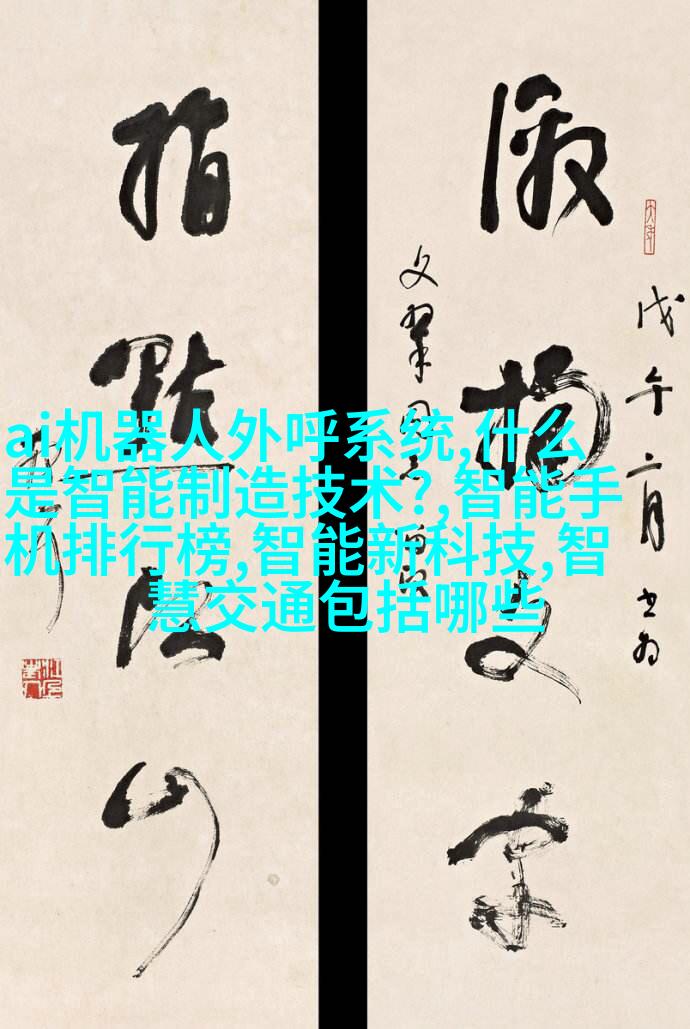 ai机器人外呼系统,什么
是智能制造技术?,智能手
机排行榜,智能新科技,智
慧交通包括哪些
戊午二月书为
激揚文字
指點江山